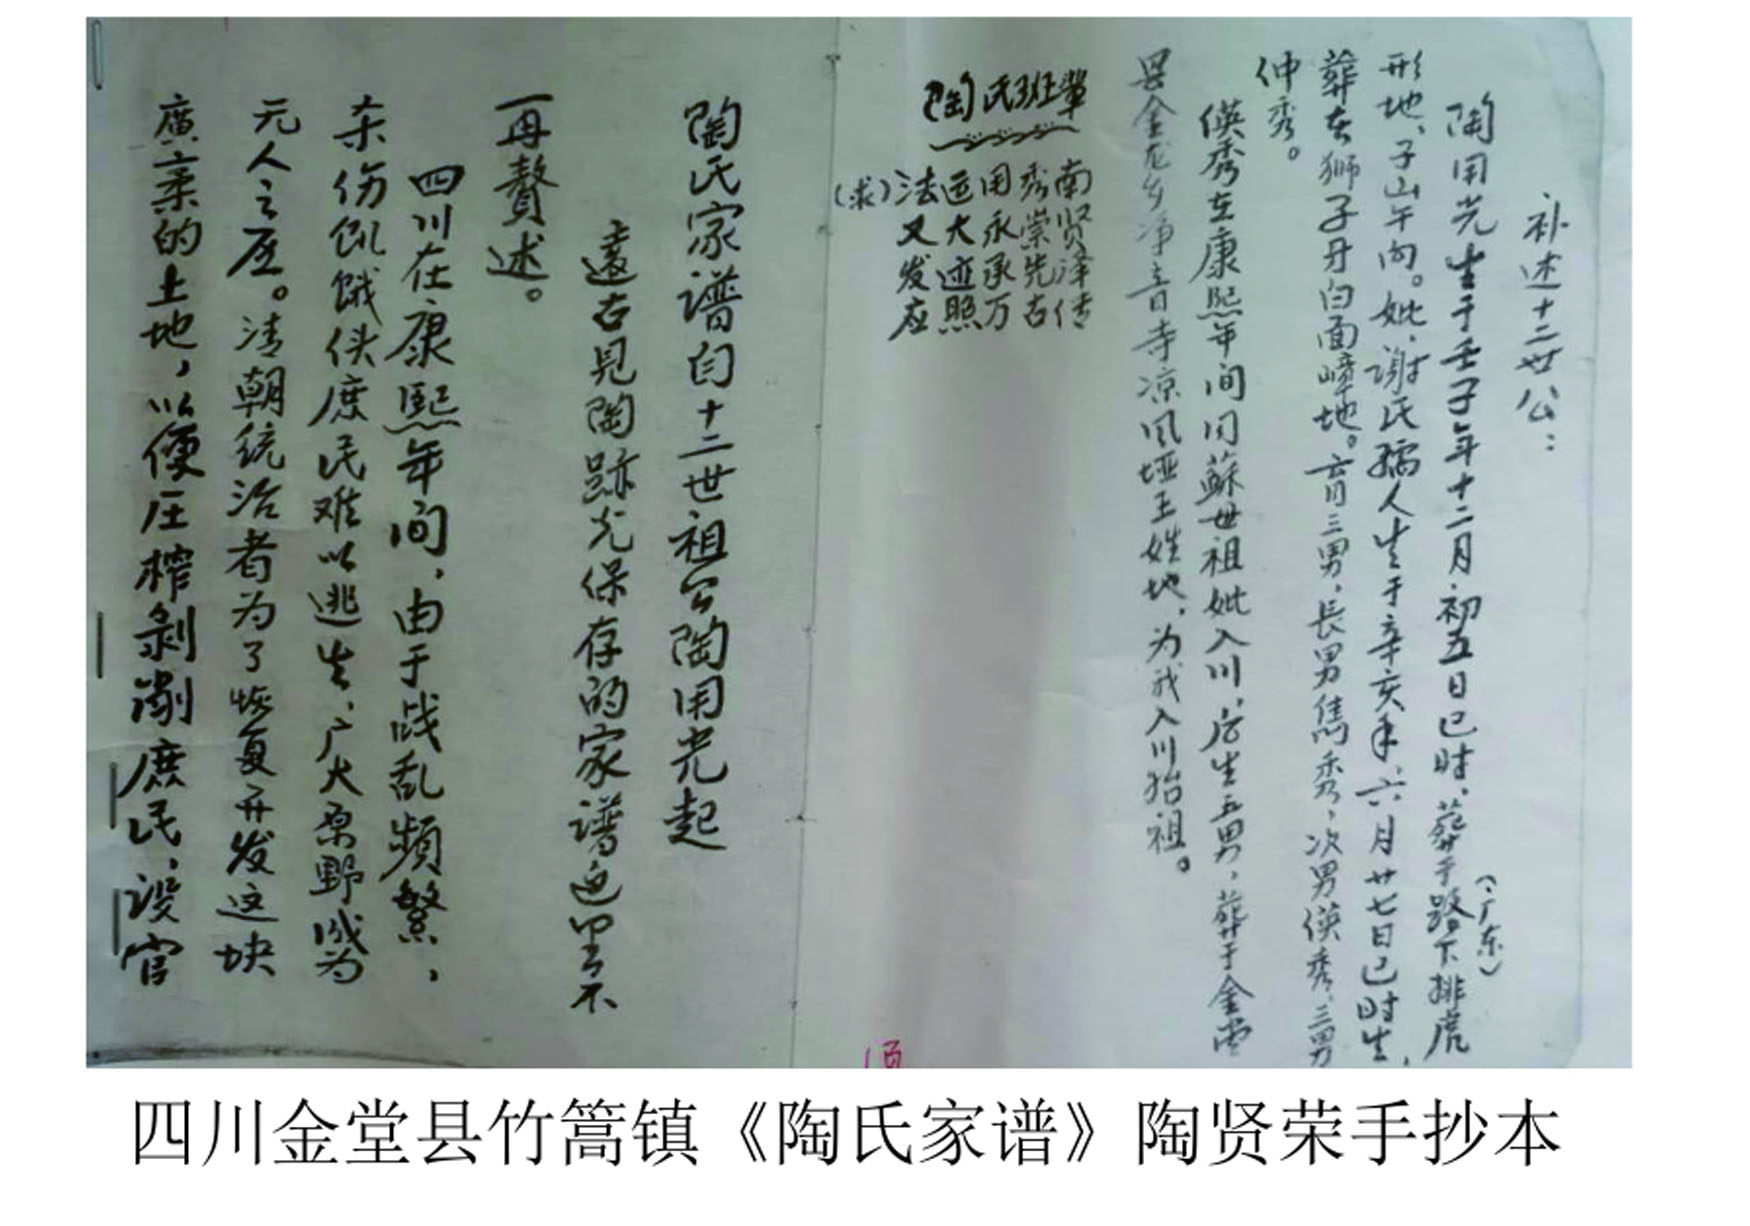 补述十二世公：
陶用光生于壬子年十二月初五日巳时，葬于路下排虎
（：广东）
形地，子山午向。妣，谢氏孺人生于辛亥年，六月廿七日巳时生，
葬在狮子丹白面嶂地。育三男，長男儁秀，次男偀秀，三男
仲秀。
偀秀在康熙年间同蘇世祖妣入川，后生五男，葬于金堂
县金龙乡净音寺凉风垭王姓地，为我入川始祖。
陶氏班辈
南贤泽传
秀崇先古
用永承万
运大迹照
法又发应
（求）
陶氏家谱自十二世祖公陶用光起
遠古見陶跡光保存的家谱这里不
再贅述。
四川在康熙年间，由于战乱頻繁，
杀伤飢餓使庶民难以逃生，广大原野成为
无人之区。清朝统治者为了恢复开发这块
廣柔的土地，以便压榨剥削庶民，设官
1页
四川金堂县竹篙镇《陶氏家谱》陶贤荣手抄本